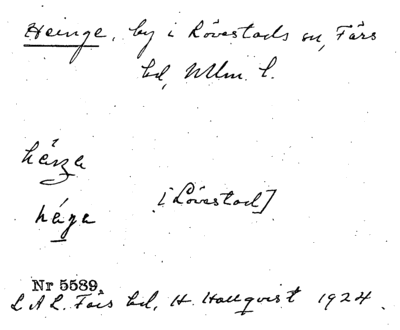 Heinge, by i Lövestads sn, Färs
hd, Mlm. l.
hä́nʒa
há̱ga
[i Lövestad]
Nr 5589,
L.A.L. Färs hd, H. Hallqvist 1924.